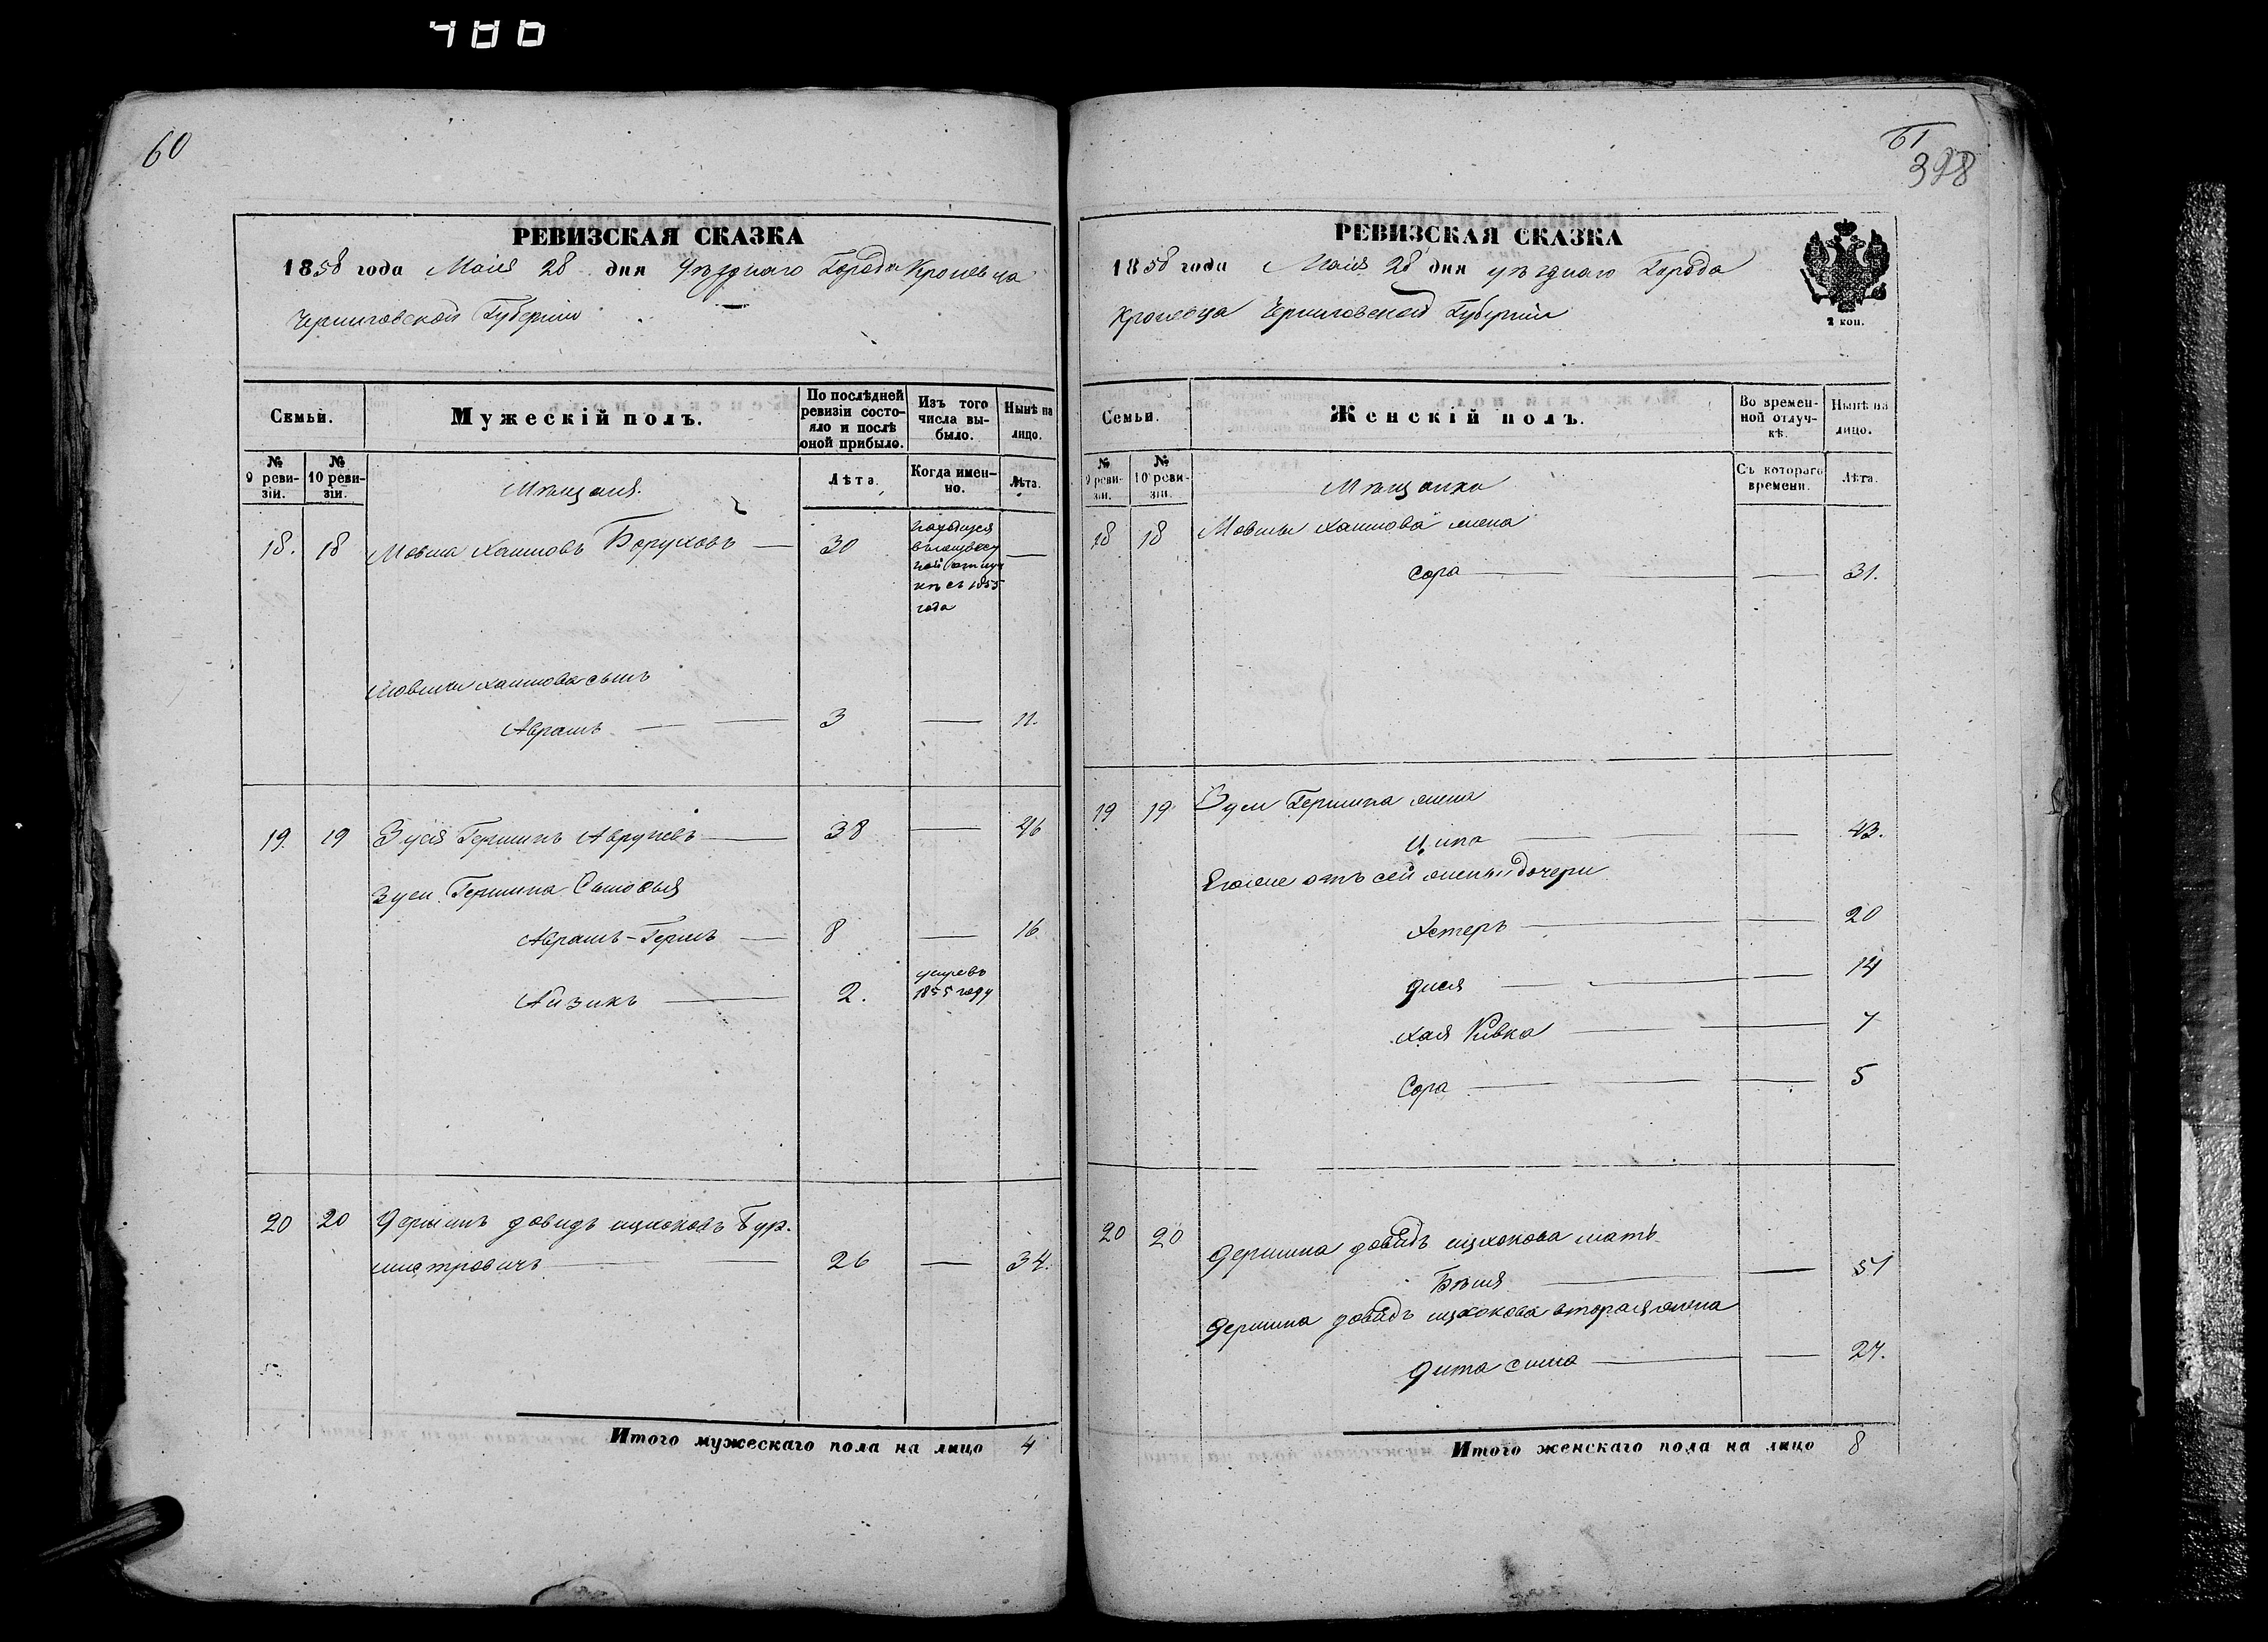 486
60
РЕВИЗСКАЯ СКАЗКА
1858 года Маія 28 дня Уѣзднаго Города Кролевца
Черниговской Губерніи
Семьи.
Мужескій полъ.
По послѣдней ревизіи состояло и послѣ оной прибыло.
Изъ того числа выбыло.
Нынѣ на лицо.
№ 9 ревизіи.
№ 10 ревизіи.
Мѣщане.
Лѣта.
Когда именно.
Лѣта.
18. 18 Мовша Хаимовъ Боруховъ — 30 находится въ отлучкѣ съ 1855 года —
Мовши Хаимова сынъ
Абрамъ — 3 — 11.
19. 19 Зуся Гершинъ — 38 — 46
Зуси Гершина Сыновья
Абрамъ-Гершъ — 8 — 16
Айзикъ — 2. умре въ 1855 году
20 20 Гершинъ Довидъ Ицхоковъ Бур-
мистровичъ — 26 — 34.
Итого мужескаго пола на лицо 4
61
398
РЕВИЗСКАЯ СКАЗКА
1858 года Маія 28 дня Уѣзднаго Города
Кролевца Черниговской Губерніи
2 коп.
Семьи.
Женскій полъ.
Во временной отлучкѣ.
Нынѣ на лицо.
№ 9 ревизіи.
№ 10 ревизіи.
Мѣщанки
Съ котораго времени.
Лѣта.
18 18 Мовши Хаимова жена
Сора — — 31.
19 19 Зуси Гершина жена
Ципа — — 43.
Его же отъ сей жены дочери
Хстеръ — — 20
— — 14
Хая Ривка — — 7
Сора — — 5
20 20 Гершина Довидъ Ицхокова мать
— — 51
Гершина Довидъ Ицхокова вторая жена
Гита Сима — — 27.
Итого женскаго пола на лицо 8